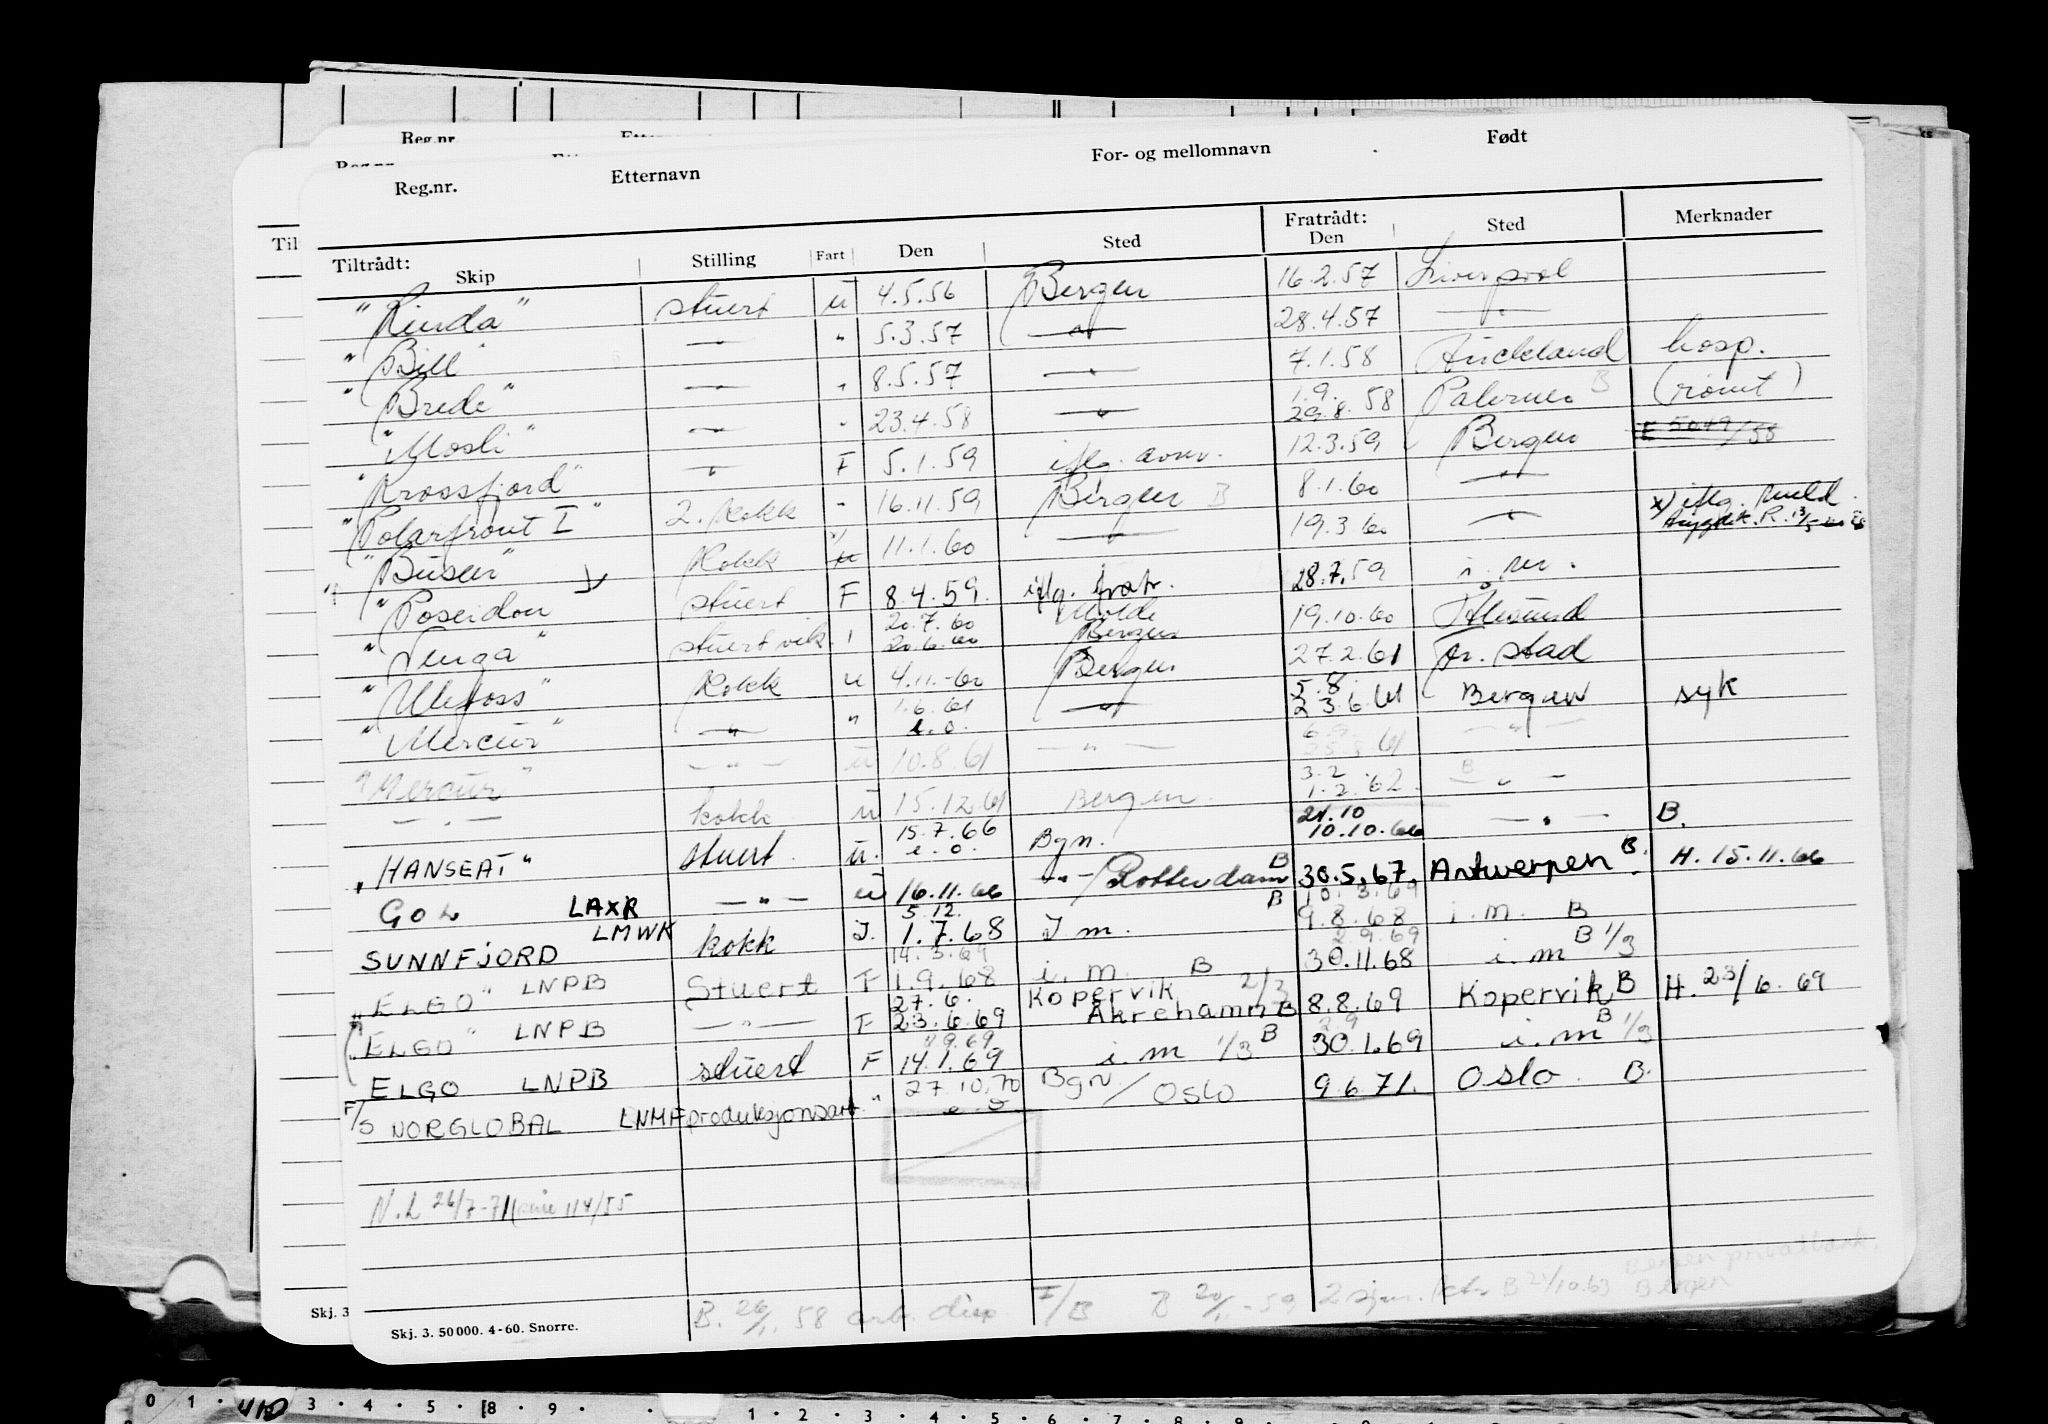 Reg.nr.
Reg.nr. Etternavn For- og mellomnavn Født
Tiltrådt: Skip Stilling Fart Den Sted Fratrådt: Den Sted Merknader
"Kinda" stuert u 4.5.56 Bergen 16.2.57 Liverpool
"Bill" — " — " 5.3.57 — " — 28.4.57 — " —
"Brede" — " — " 8.5.57 — " — 7.1.58 Auckland hosp.
"Mosli" — " — " 23.4.58 — " — 1.9. 29.8.58 Palermo B (rømt)
"Krossfjord" " F 5.1.59 iflg. avm. 12.3.59 Bergen E 5049/58
"Polarfront I" 2. kokk " 16.11.59 Bergen B 8.1.60 — " —
"Busen" kokk 11.1.60 — " — 19.3.60 — " — x) iflg. meld.
"Poseidon" stuert F 8.4.59. iflg. fratr. 28.7.59 i. m.
"Senga" stuert vik. 20.7.60 20.6.60 Molde Bergen 19.10.60 Ålesund
"Ulefoss" kokk u 4.11.60 Bergen 27.2.61 Fr.stad
"Mercur" — " — " 1.6.61 e.o. — " — 5.8. 23.6.61 Bergen syk
"Mercur" — " — u 10.8.61 — " — 6.9. 25.8.61 — " —
— " — kokk u 15.12.61 Bergen. 3.2. 1.2.62. B — " —
"HANSEAT" stuert u. 15.7.66 e.o. Bgn. 21.10 10.10.66 — " — B.
GOL LAXR — " — u 16.11.66 — " — / Rotterdam B 30.5.67. Antwerpen B. H. 15.11.66
SUNNFJORD LMWK kokk J. 5.12. 1.7.68 J m. B 10.3.69 9.8.68 i. m. B
"ELGO" LNPB Stuert F 14.3.69 1.9.68 i. m. B 2/3 2.9.69 30.11.68 i. m B 1/3
"ELGO" LNPB — " — F 27.6. 23.6.69 Kopervik Åkrehamn B 8.8.69 Kopervik B H. 23/6.69
ELGO LNPB stuert F 14.1.69 i. m 1/3 B 2.9 30.1.69 i. m B 1/3
F/S NORGLOBAL LNMF produksjonsarb. " 27.10.70 e.o Bgn / Oslo 9.6.71. Oslo. B.
N.L 26/7-71
B. 26/1.58 arb. disp F/B B 20/11-59 B 21/10.63 Bergen privatbank. Bergen
Skj. 3
Skj. 3. 50 000. 4-60. Snorre.
0 1 3 4 5 8 9 1 2 3 4 5 6 7 8 9